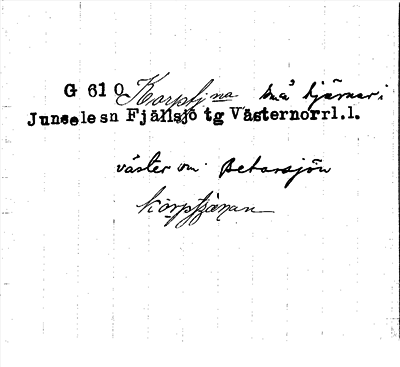 G 610 Korptj na små tjärnar i
Junsele sn Fjällsjö tg Västernorrl.l.
väster om Betarsjön
kårptjänan